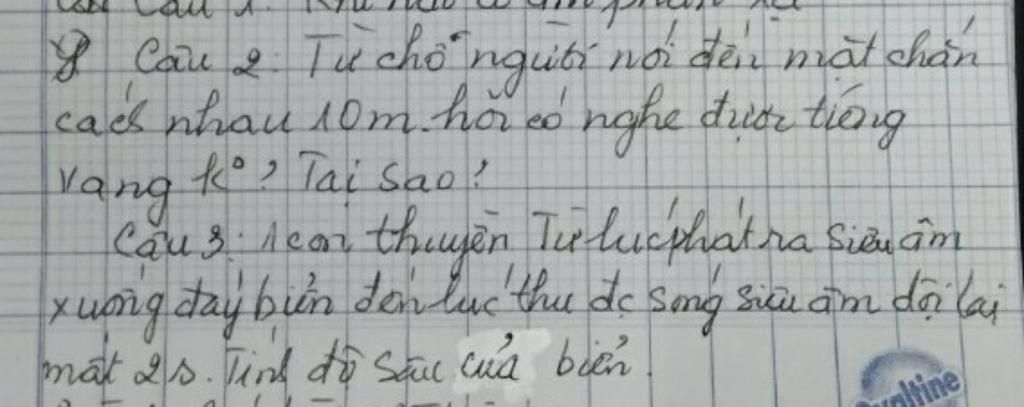 Câu 2: Từ chỗ người nói đến mặt chắn
cách nhau 10m. hỏi có nghe được tiếng
vang k°? Tại sao?
Câu 3: 1 con thuyền Từ lúc phát ra siêu âm
xuống đáy biển đến lúc thu đc sóng siêu âm dội lại
mất 2s. Tính độ sâu của biển.
Ovaltine